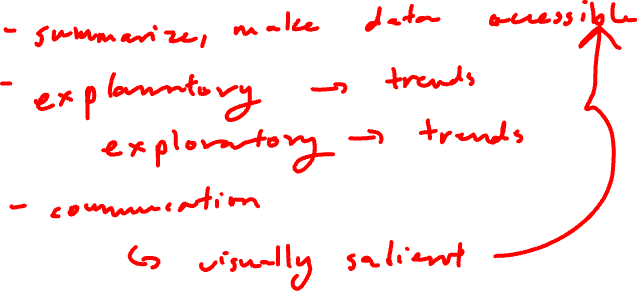 - summarize, make data accessible
- explanatory → trends
exploratory → trends
- communication
↳ visually salient